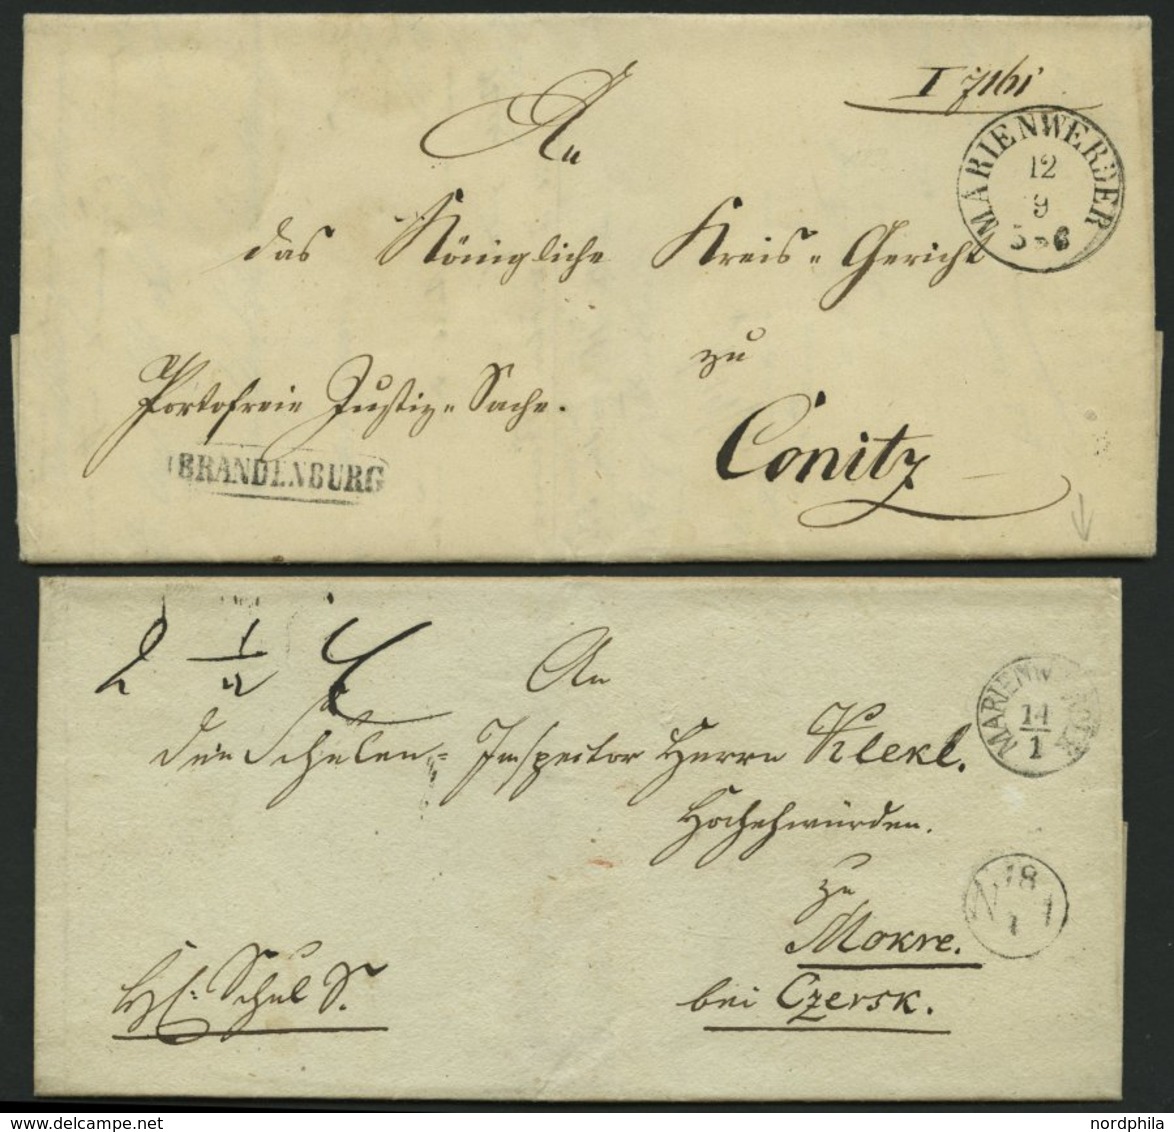 I 7161
An
MARIENWERDER
12
9
5-6
das Königliche Kreis- Gericht
zu
Portofreie Justiz- Sache.
Conitz
BRANDENBURG
2 1/2
An
den Schulen- Inspector Herrn Klekl.
MARIENWERDER
14
1
Hochehrwürden.
zu
N 18
1
Mokre.
Schul S.
bei Czersk.
delcampe.net
nordphila